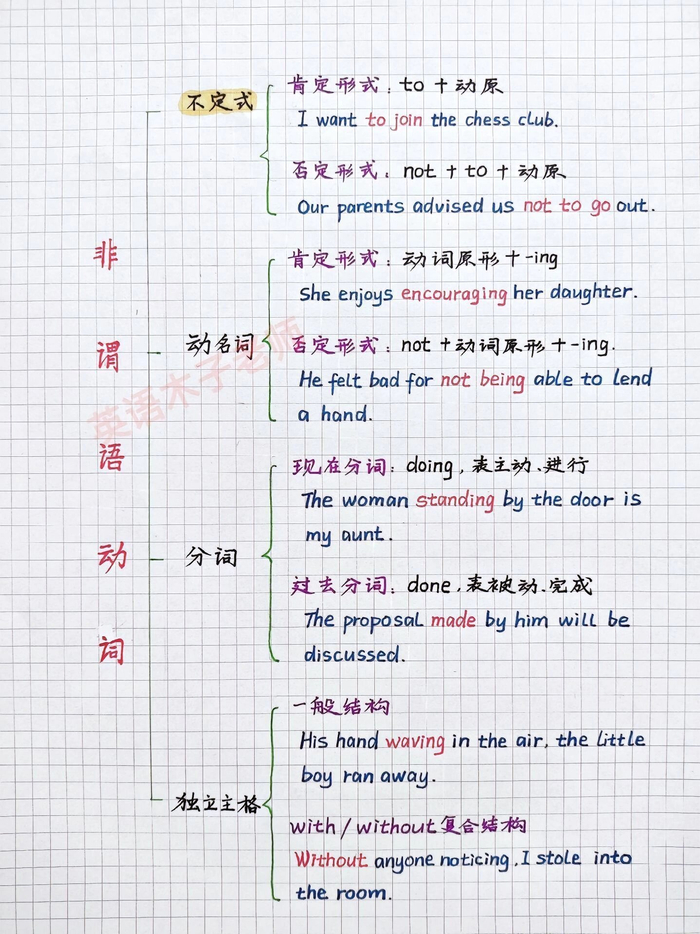 不定式
肯定形式：to + 动原
I want to join the chess club.
否定形式：not + to + 动原
Our parents advised us not to go out.
非谓语动词
动名词
肯定形式：动词原形 + -ing
She enjoys encouraging her daughter.
否定形式：not + 动词原形 + -ing.
He felt bad for not being able to lend
a hand.
英语木子老师
分词
现在分词：doing，表主动、进行
The woman standing by the door is
my aunt.
过去分词：done，表被动、完成
The proposal made by him will be
discussed.
独立主格
一般结构
His hand waving in the air, the little
boy ran away.
with / without复合结构
Without anyone noticing, I stole into
the room.